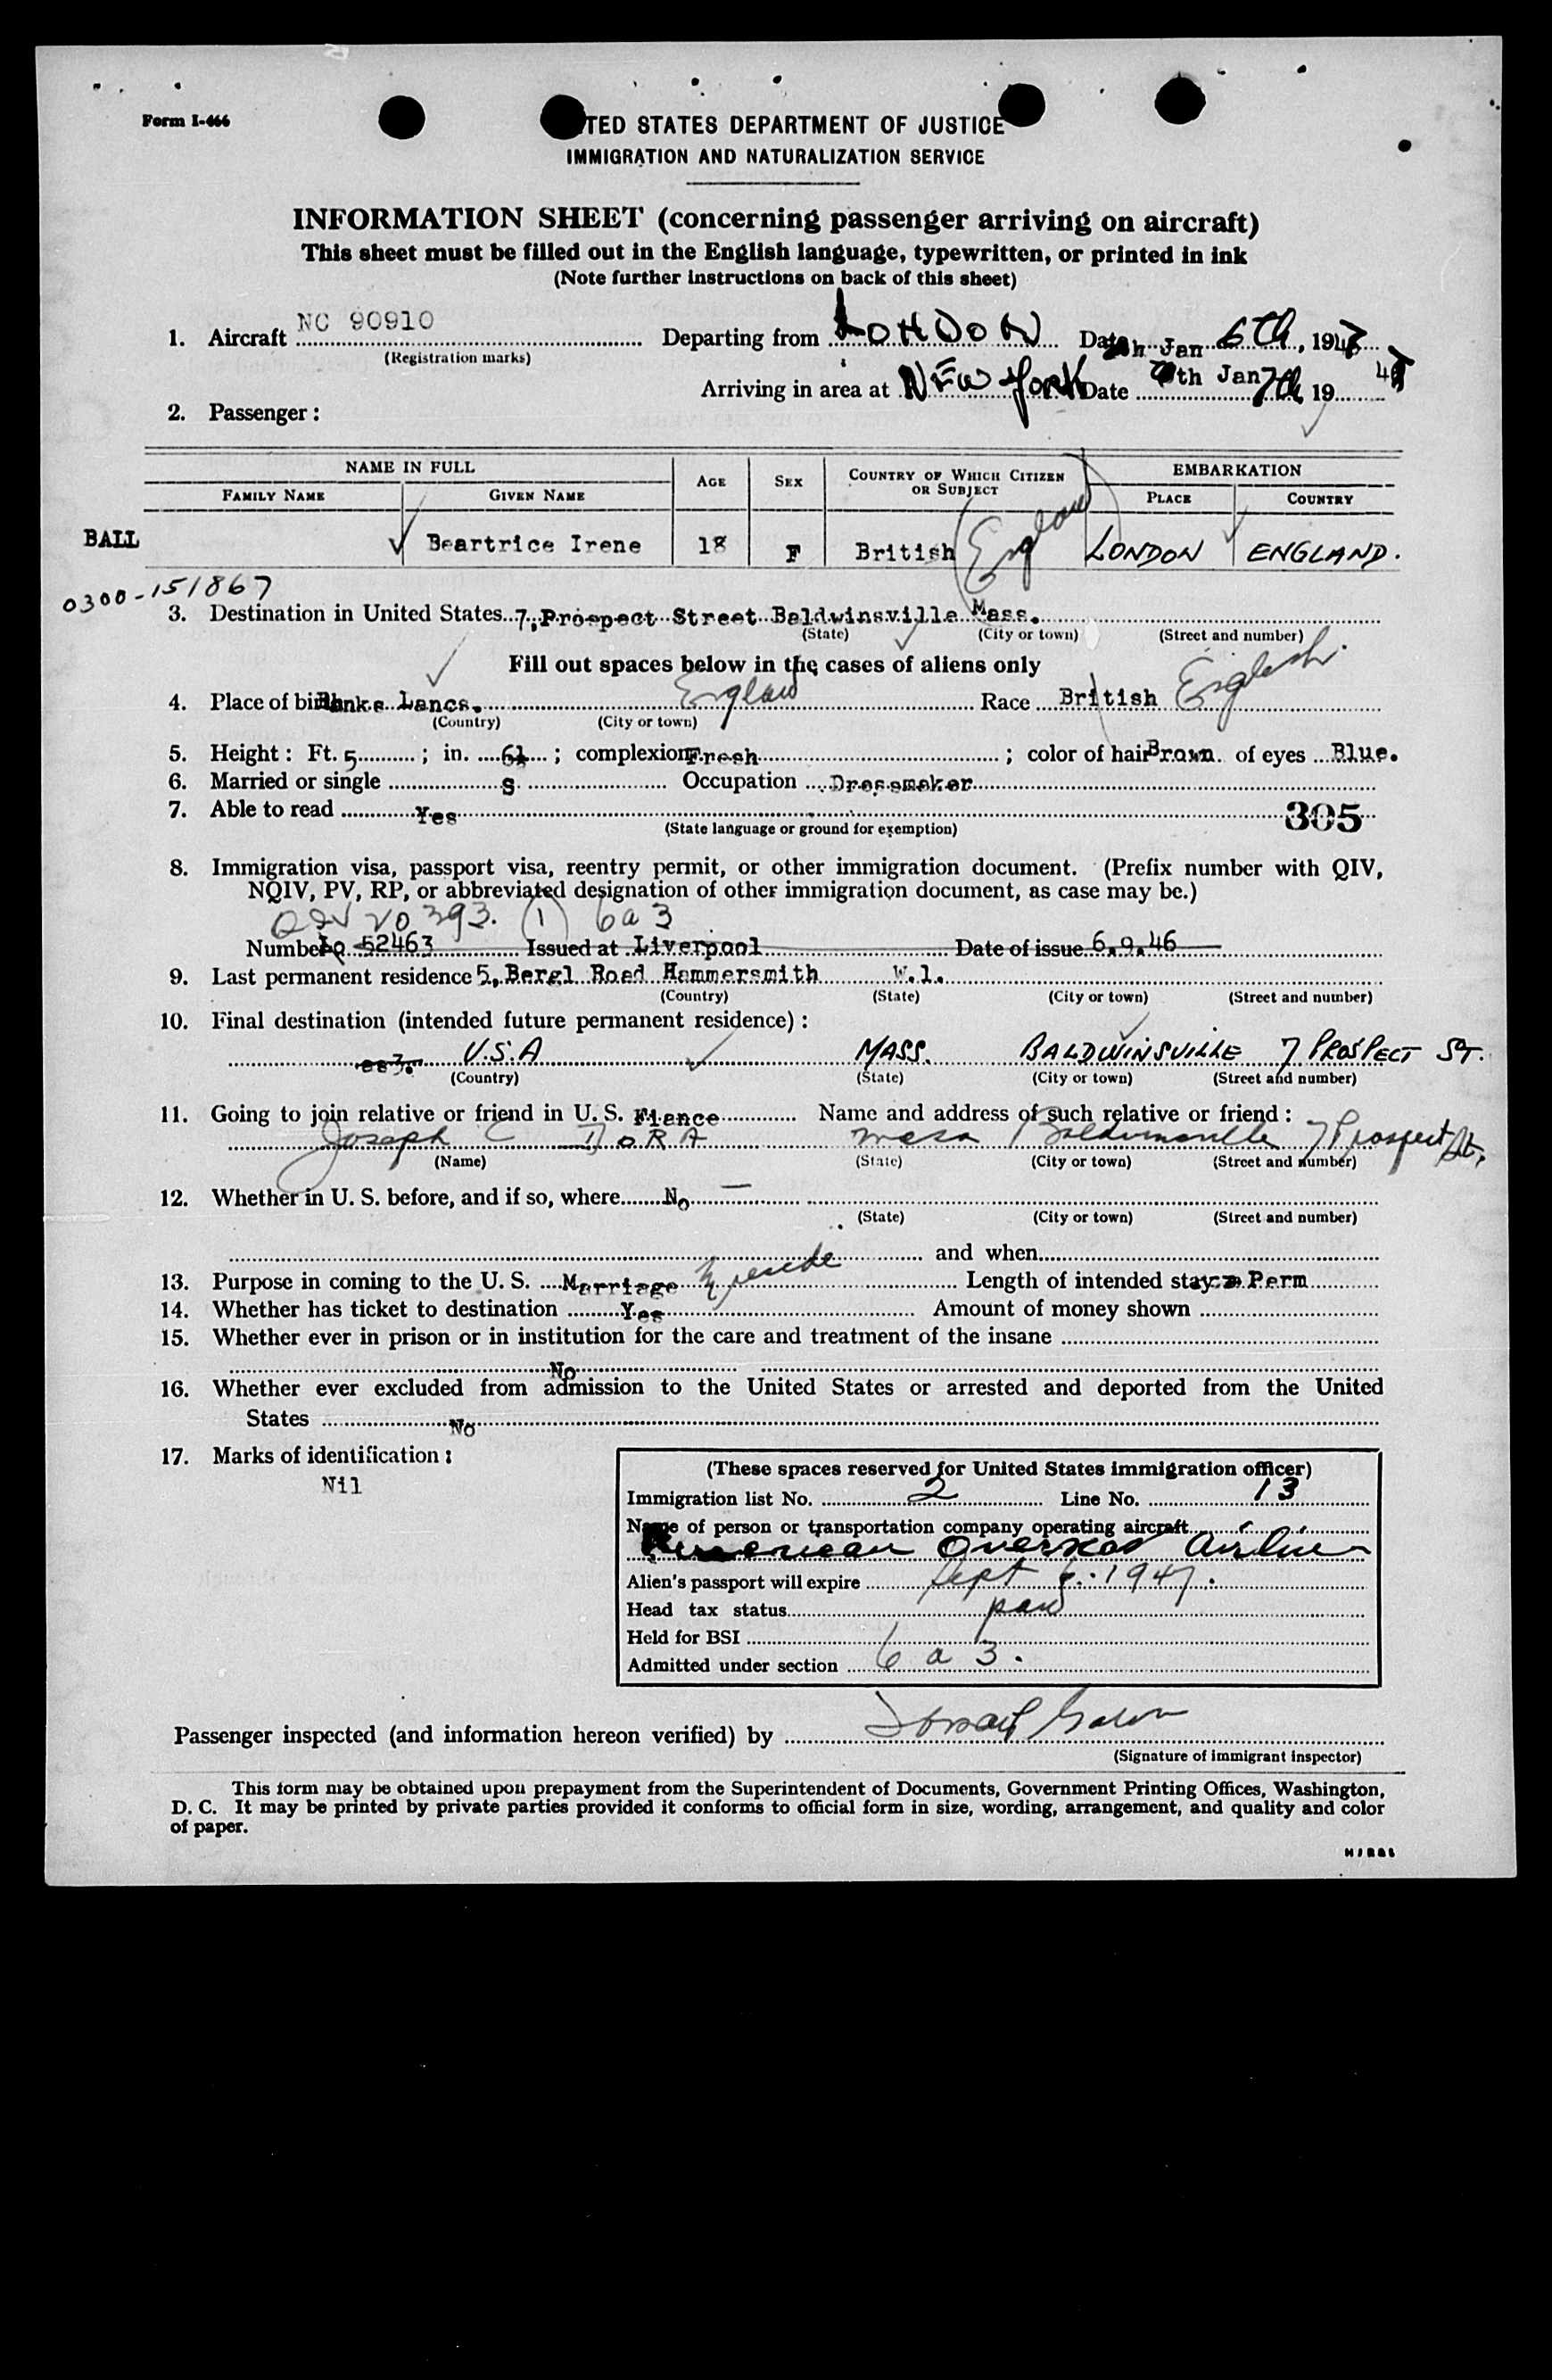 Form I-466
TED STATES DEPARTMENT OF JUSTICE
IMMIGRATION AND NATURALIZATION SERVICE
INFORMATION SHEET (concerning passenger arriving on aircraft)
This sheet must be filled out in the English language, typewritten, or printed in ink
(Note further instructions on back of this sheet)
1. Aircraft NC 90910 Departing from LONDON Date Jan 6th, 1947
(Registration marks)
Arriving in area at NEW YORK Date th Jan 7th 19 47
2. Passenger:
NAME IN FULL AGE SEX COUNTRY OF WHICH CITIZEN OR SUBJECT EMBARKATION
FAMILY NAME GIVEN NAME PLACE COUNTRY
BALL Beartrice Irene 18 F British England LONDON ENGLAND.
0300-151867
3. Destination in United States 7, Prospect Street Baldwinsville Mass.
(State) (City or town) (Street and number)
Fill out spaces below in the cases of aliens only
4. Place of birth Banks Lancs. England Race British English
(Country) (City or town)
5. Height: Ft. 5; in. 6½; complexion Fresh; color of hair Brown of eyes Blue.
6. Married or single S Occupation Dressmaker
7. Able to read Yes 305
(State language or ground for exemption)
8. Immigration visa, passport visa, reentry permit, or other immigration document. (Prefix number with QIV,
NQIV, PV, RP, or abbreviated designation of other immigration document, as case may be.)
QIV 20393. (1) 6a3
Number Lo 52463 Issued at Liverpool Date of issue 6.9.46
9. Last permanent residence 5, Bergl Road Hammersmith W.1.
(Country) (State) (City or town) (Street and number)
10. Final destination (intended future permanent residence):
U.S.A MASS. BALDWINSVILLE 7 PROSPECT ST.
(Country) (State) (City or town) (Street and number)
11. Going to join relative or friend in U. S. Fiance Name and address of such relative or friend:
Joseph C DORA Mass Baldwinsville 7 Prospect St,
(Name) (State) (City or town) (Street and number)
12. Whether in U. S. before, and if so, where No
(State) (City or town) (Street and number)
and when
13. Purpose in coming to the U. S. Marriage & reside Length of intended stay Perm
14. Whether has ticket to destination Yes Amount of money shown
15. Whether ever in prison or in institution for the care and treatment of the insane
No
16. Whether ever excluded from admission to the United States or arrested and deported from the United
States No
17. Marks of identification:
Nil
(These spaces reserved for United States immigration officer)
Immigration list No. 2 Line No. 13
Name of person or transportation company operating aircraft
American Overseas Airlines
Alien's passport will expire Sept 6. 1947.
Head tax status paid
Held for BSI
Admitted under section 6 a 3.
Passenger inspected (and information hereon verified) by
(Signature of immigrant inspector)
This form may be obtained upon prepayment from the Superintendent of Documents, Government Printing Offices, Washington,
D. C. It may be printed by private parties provided it conforms to official form in size, wording, arrangement, and quality and color
of paper.